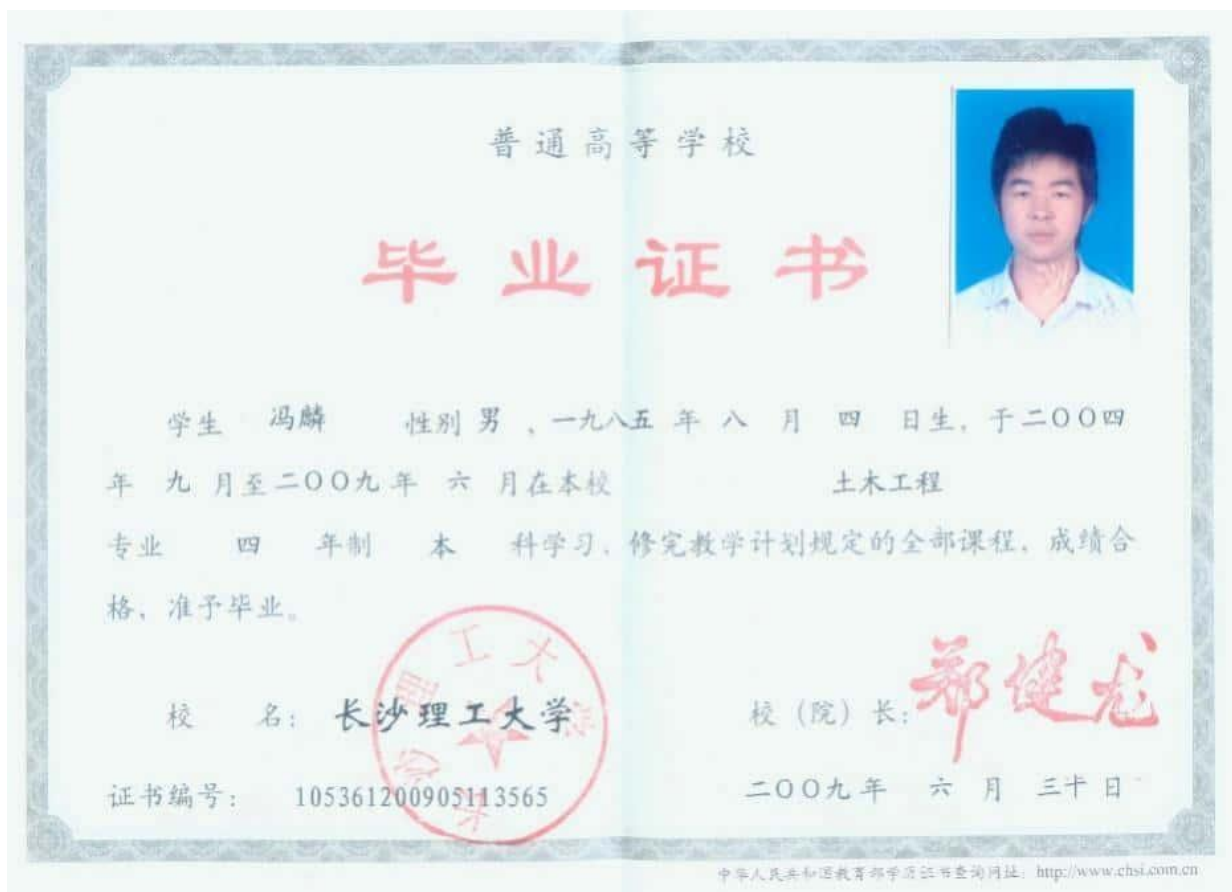 普通高等学校
毕业证书
学生 冯麟 性别 男 、一九八五 年 八 月 四 日生，于二〇〇四
年 九 月至二〇〇九年 六 月在本校 土木工程
专业 四 年制 本 科学习，修完教学计划规定的全部课程，成绩合
格，准予毕业。
校 名： 长沙理工大学
校（院）长： 郑健龙
长沙理工大学
证书编号： 105361200905113565
二〇〇九年 六 月 三十 日
中华人民共和国教育部学历证书查询网址：http://www.chsi.com.cn